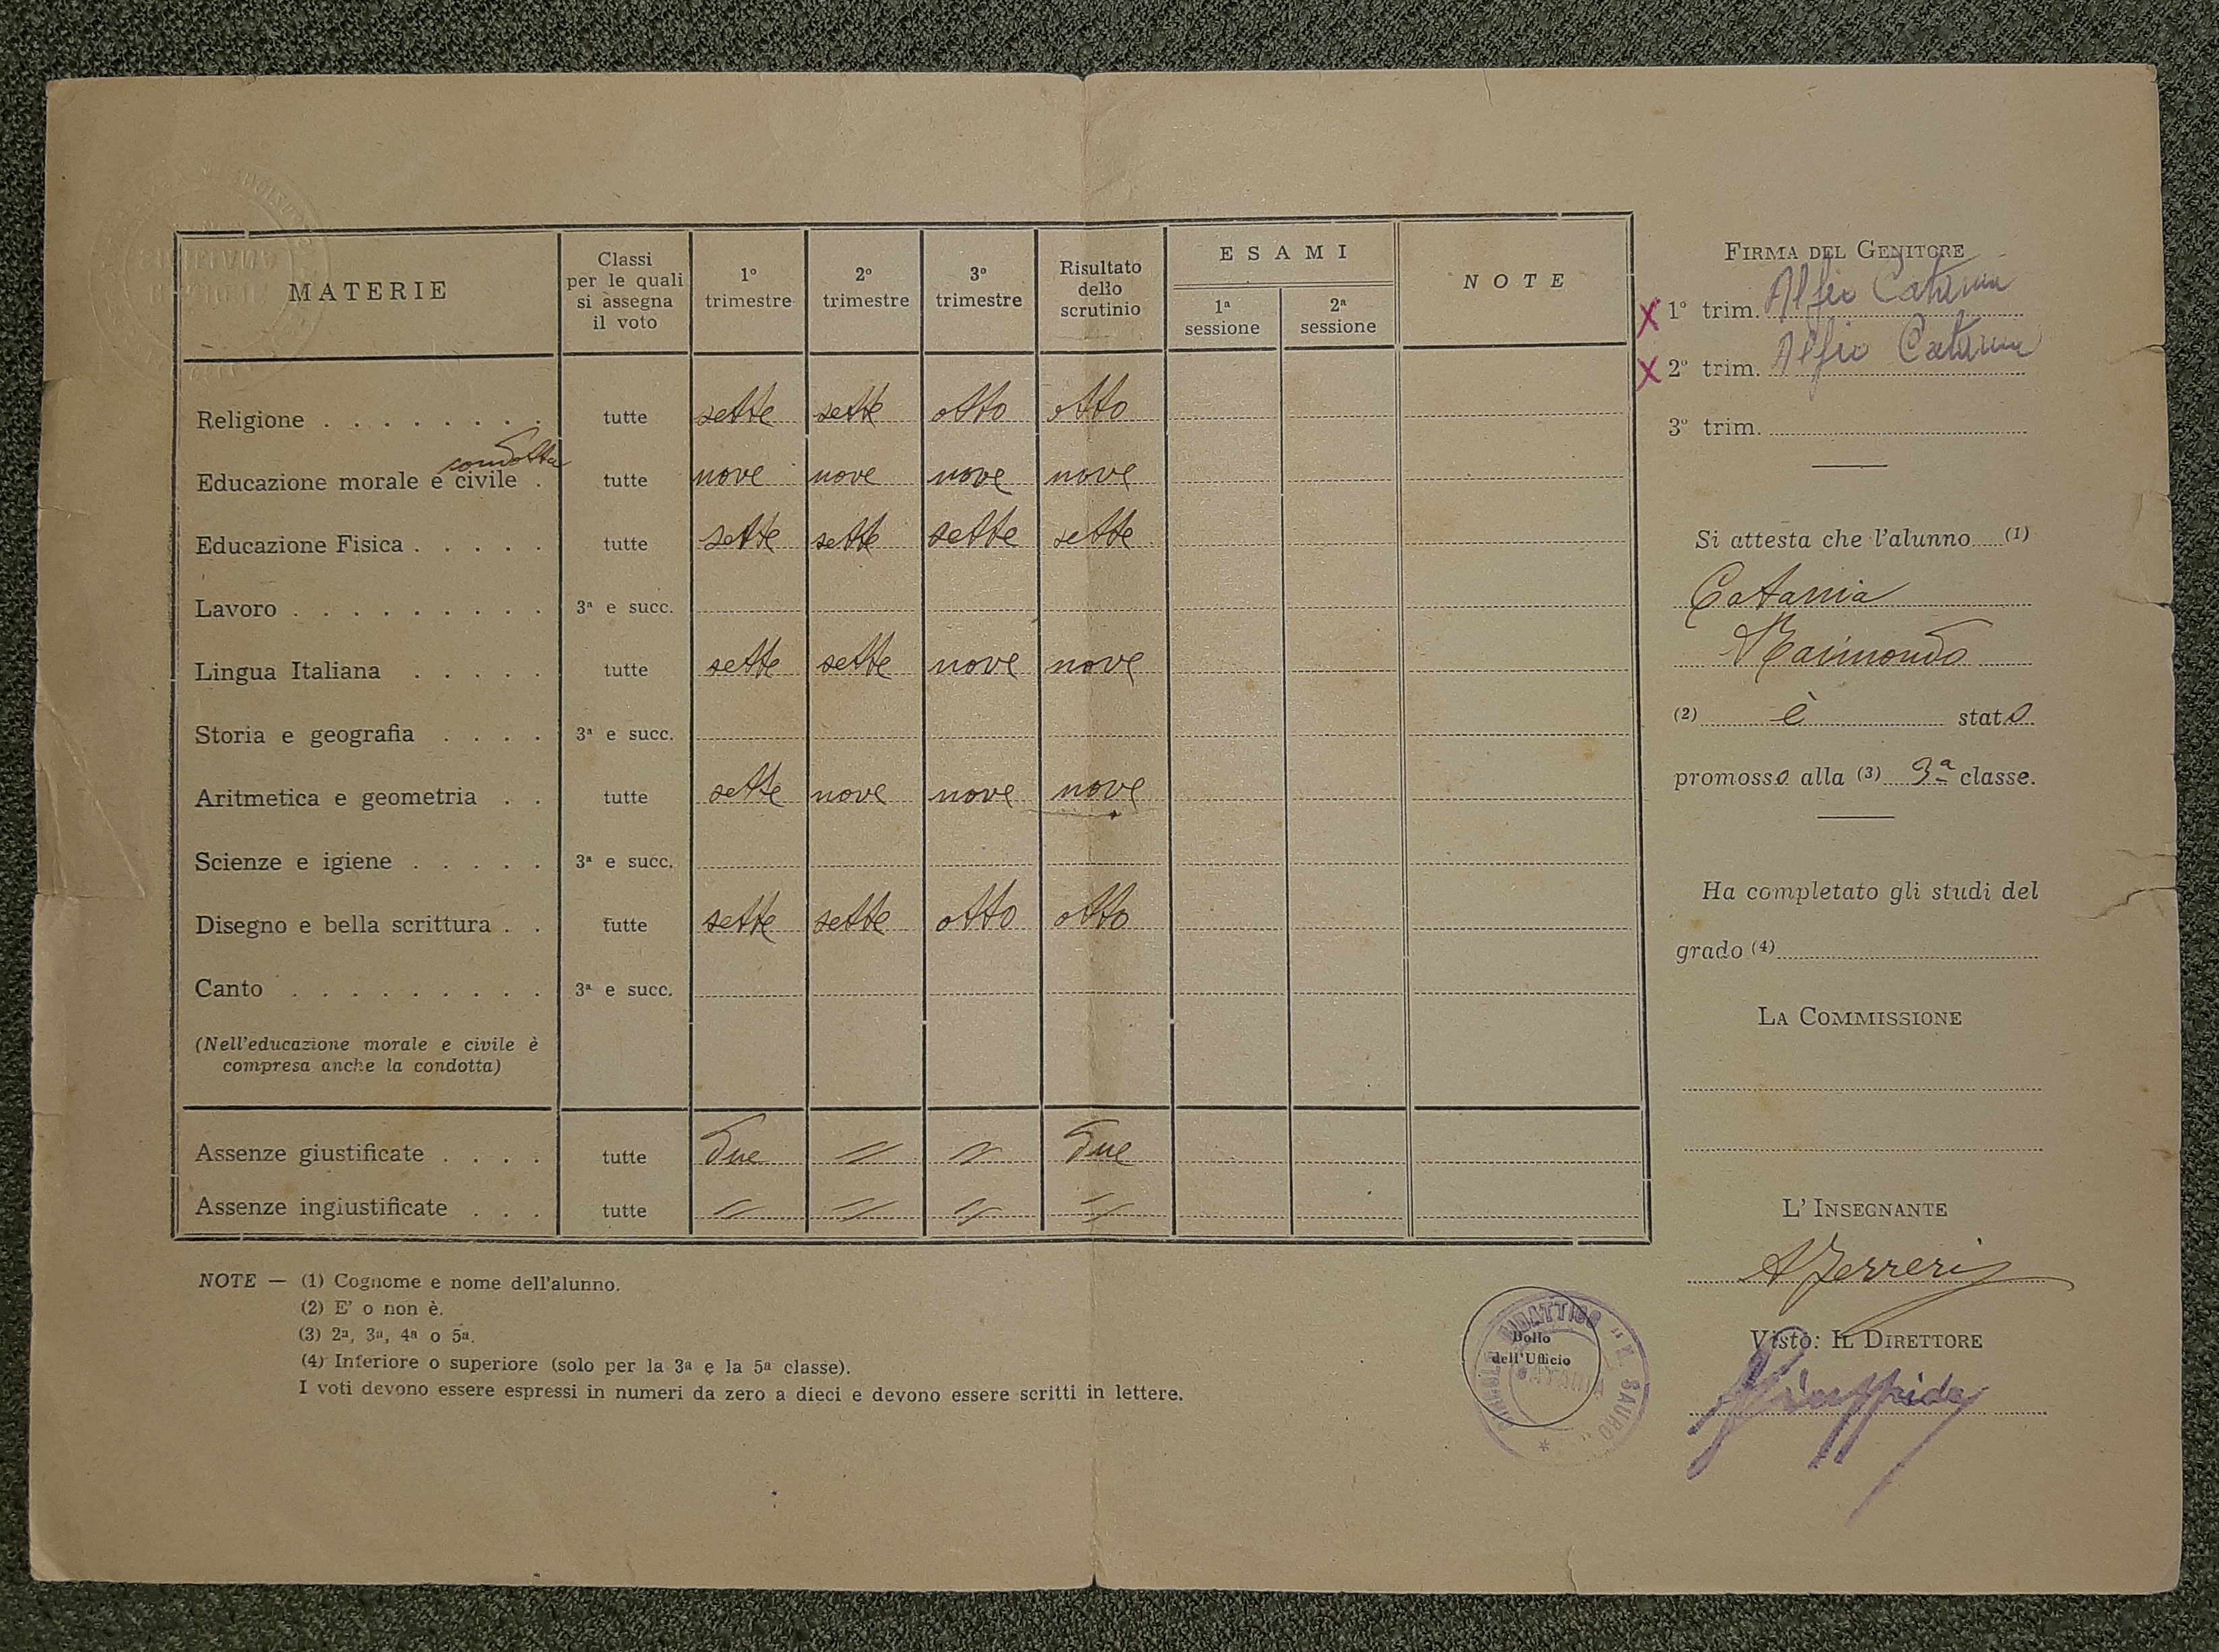 MATERIE
Classi per le quali si assegna il voto
1º trimestre
2º trimestre
3º trimestre
Risultato dello scrutinio
ESAMI
1ª sessione
2ª sessione
NOTE
Religione . . . . . . . . tutte sette sette otto otto
condotta
Educazione morale e civile . tutte nove nove nove nove
Educazione Fisica . . . . . tutte sette sette sette sette
Lavoro . . . . . . . . . 3ª e succ.
Lingua Italiana . . . . . tutte sette sette nove nove
Storia e geografia . . . . 3ª e succ.
Aritmetica e geometria . . tutte sette nove nove nove
Scienze e igiene . . . . . 3ª e succ.
Disegno e bella scrittura . . tutte sette sette otto otto
Canto . . . . . . . . . 3ª e succ.
(Nell'educazione morale e civile è
compresa anche la condotta)
Assenze giustificate . . . . tutte due // // due
Assenze ingiustificate . . . tutte // // // //
NOTE — (1) Cognome e nome dell'alunno.
(2) E' o non è.
(3) 2ª, 3ª, 4ª o 5ª.
(4) Inferiore o superiore (solo per la 3ª e la 5ª classe).
I voti devono essere espressi in numeri da zero a dieci e devono essere scritti in lettere.
Bollo
dell'Ufficio
DIDATTICO "N. SAURO"
FIRMA DEL GENITORE
X 1º trim. Alfio Catania
X 2º trim. Alfio Catania
3º trim.
Si attesta che l'alunno (1)
Catania
Raimondo
(2) è stato
promosso alla (3) 3ª classe.
Ha completato gli studi del
grado (4)
LA COMMISSIONE
L'INSEGNANTE
Visto: IL DIRETTORE